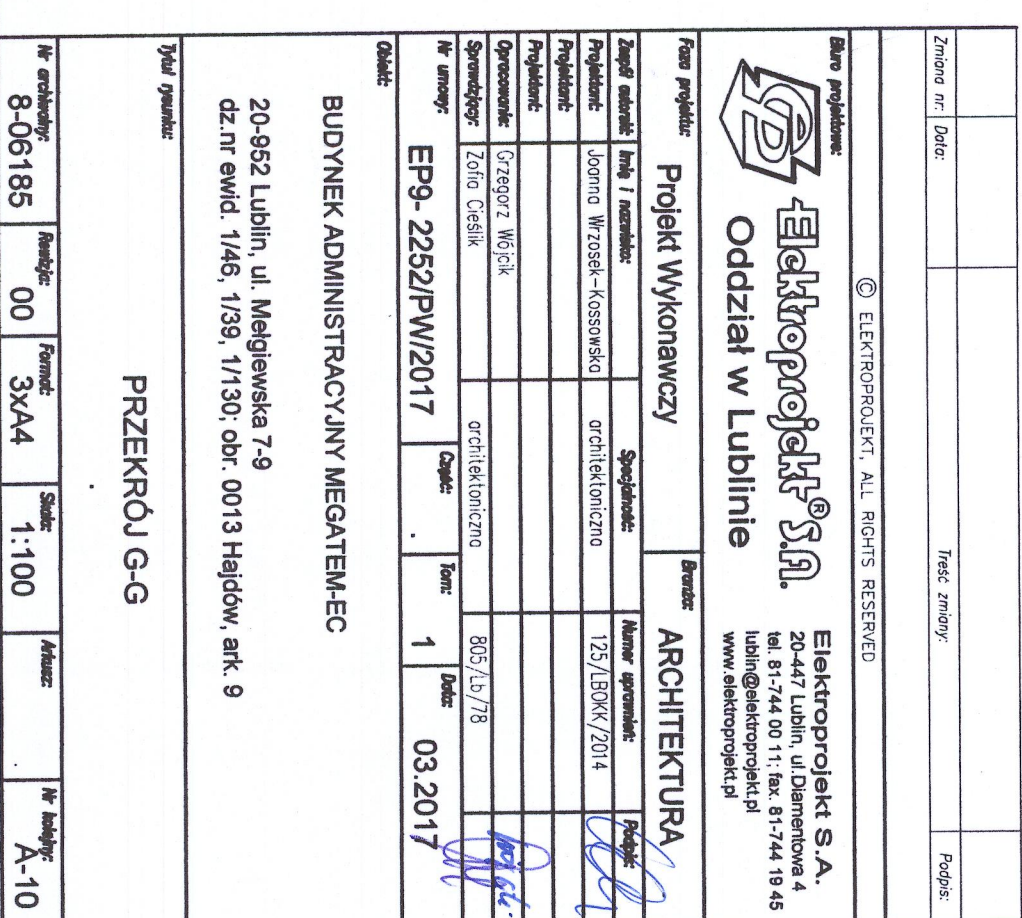 Zmiana nr: Data: Treść zmiany: Podpis:
© ELEKTROPROJEKT, ALL RIGHTS RESERVED
Biuro projektowe:
Elektroprojekt® S.A.
Oddział w Lublinie
Elektroprojekt S.A.
20-447 Lublin, ul.Diamentowa 4
tel. 81-744 00 11; fax. 81-744 19 45
lublin@elektroprojekt.pl
www.elektroprojekt.pl
Faza projektu: Projekt Wykonawczy Branża: ARCHITEKTURA
Zespół autorski: Imię i nazwisko: Specjalność: Numer uprawnień: Podpis:
Projektant: Joanna Wrzosek-Kossowska architektoniczna 125/LBOKK/2014
Projektant:
Projektant:
Opracowanie: Grzegorz Wójcik
Sprawdzający: Zofia Cieślik architektoniczna 805/Lb/78
Nr umowy: EP9- 2252/PW/2017 Część: . Tom: 1 Data: 03.2017
Obiekt:
BUDYNEK ADMINISTRACYJNY MEGATEM-EC
20-952 Lublin, ul. Mełgiewska 7-9
dz.nr ewid. 1/46, 1/39, 1/130; obr. 0013 Hajdów, ark. 9
Tytuł rysunku:
PRZEKRÓJ G-G
Nr archiwalny: 8-06185 Rewizja: 00 Format: 3xA4 Skala: 1:100 Arkusz: . Nr kolejny: A-10